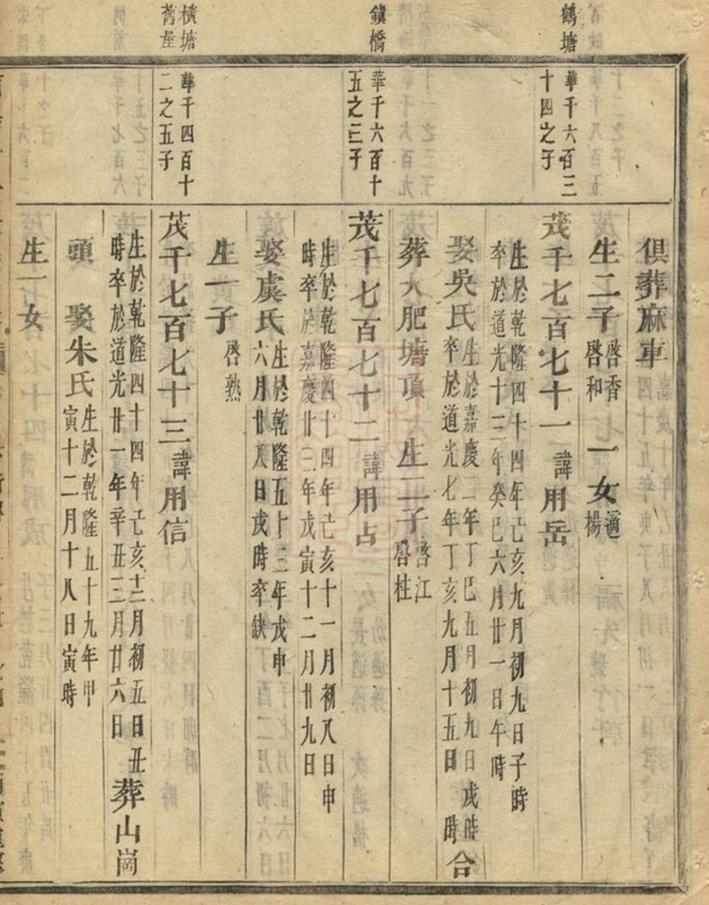 鶴塘
華千六百三
十四之子
鎮橋
華千六百十
五之三子
橫塘
舊屋
華千四百十
二之五子
俱葬麻車
生二子 啓香
啓和
一女 適
楊
茂千七百七十一 諱用岳
生於乾隆四十四年己亥九月初九日子時
卒於道光十三年癸巳六月廿一日午時
娶吳氏 生於嘉慶二年丁巳五月初九日戌時
卒於道光七年丁亥九月十五日 時
合
葬大肥塘項 生二子 啓江
啓桂
茂千七百七十二 諱用占
生於乾隆四十四年己亥十一月初八日申
時卒於嘉慶廿三年戊寅十二月廿九日
娶虞氏 生於乾隆五十三年戊申
六月廿八日戌時卒缺
生一子 啓熟
茂千七百七十三 諱用信
生於乾隆四十四年己亥十二月初五日丑
時卒於道光廿一年辛丑三月廿六日
葬山崗
頭 娶朱氏 生於乾隆五十九年甲
寅十二月十八日寅時
生一女